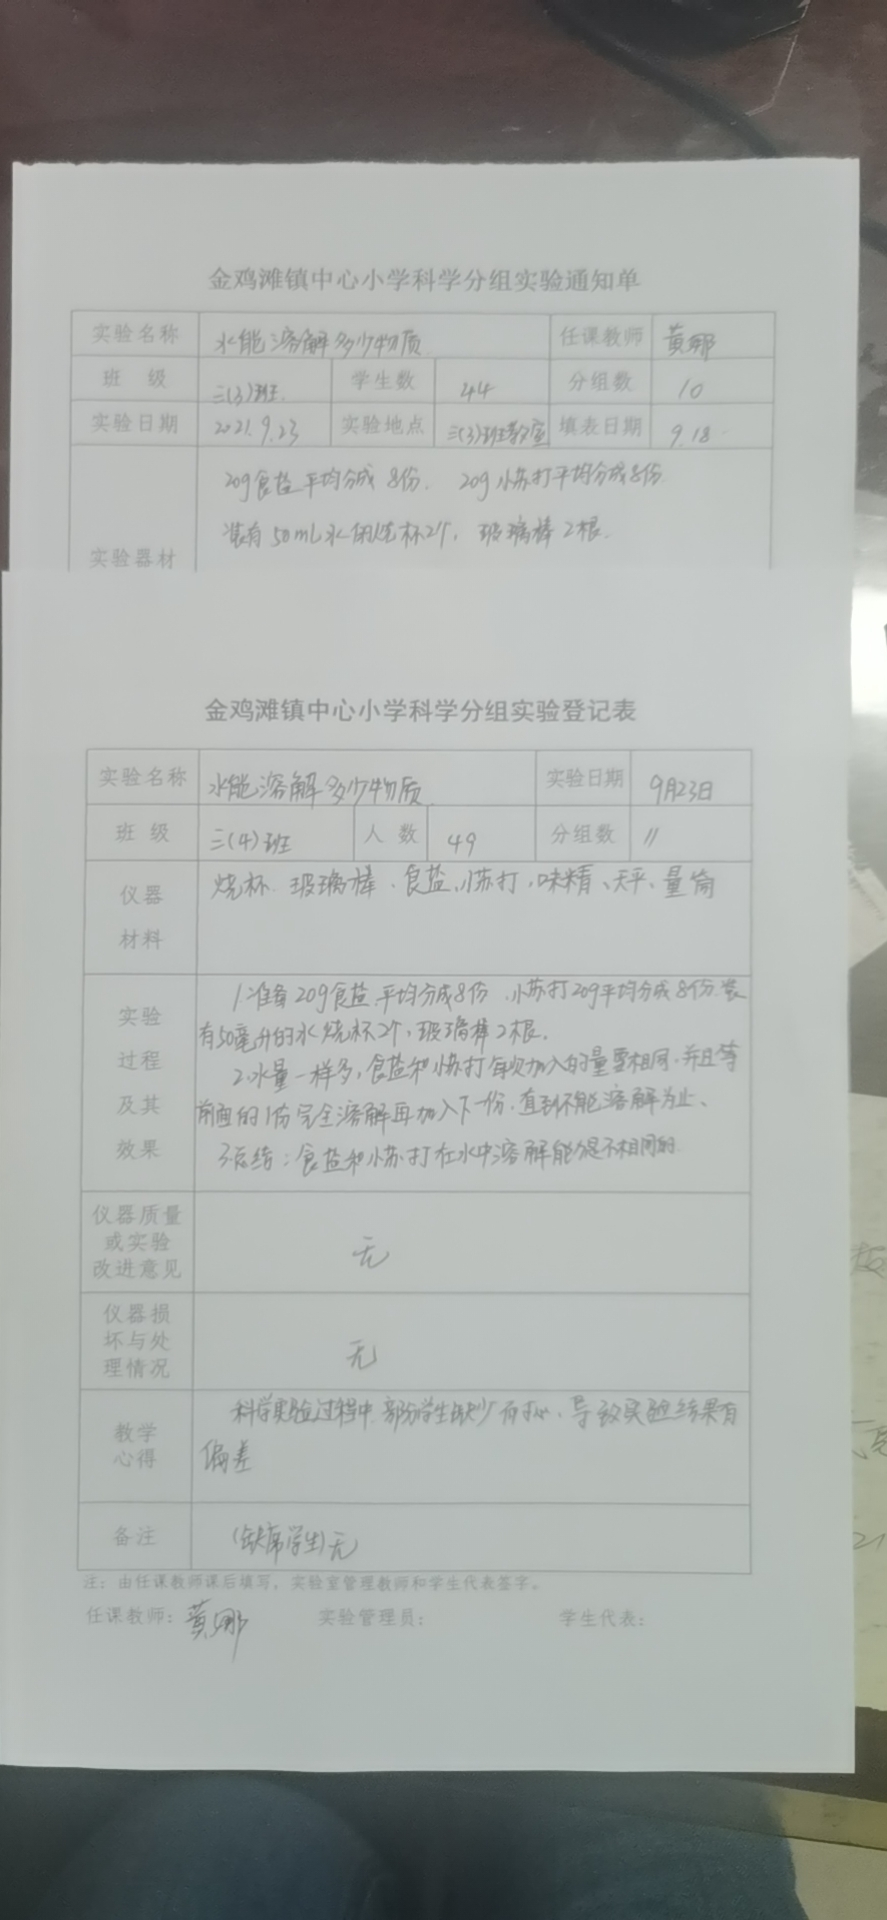 金鸡滩镇中心小学科学分组实验通知单
实验名称 水能溶解多少物质 任课教师 黄娜
班 级 三(3)班 学生数 44 分组数 10
实验日期 2021.9.23 实验地点 三(3)班教室 填表日期 9.18
20g食盐平均分成8份. 20g小苏打平均分成8份
装有50mL水的烧杯2个, 玻璃棒2根.
实验器材
金鸡滩镇中心小学科学分组实验登记表
实验名称 水能溶解多少物质 实验日期 9月23日
班 级 三(4)班 人 数 49 分组数 11
仪器
材料
烧杯、玻璃棒、食盐、小苏打、味精、天平、量筒
实验
过程
及其
效果
1.准备20g食盐平均分成8份、小苏打20g平均分成8份.装
有50毫升的水烧杯2个,玻璃棒2根.
2.水量一样多,食盐和小苏打每次加入的量要相同,并且等
前面的1份完全溶解再加入下一份,直到不能溶解为止、
3.总结:食盐和小苏打在水中溶解能力是不相同的
仪器质量
或实验
改进意见
无
仪器损
坏与处
理情况
无
教学
心得
科学实验过程中部分学生缺少耐心、导致实验结果有
偏差
备注 (缺席学生)无
注:由任课教师课后填写,实验室管理教师和学生代表签字。
任课教师:黄娜 实验管理员: 学生代表: